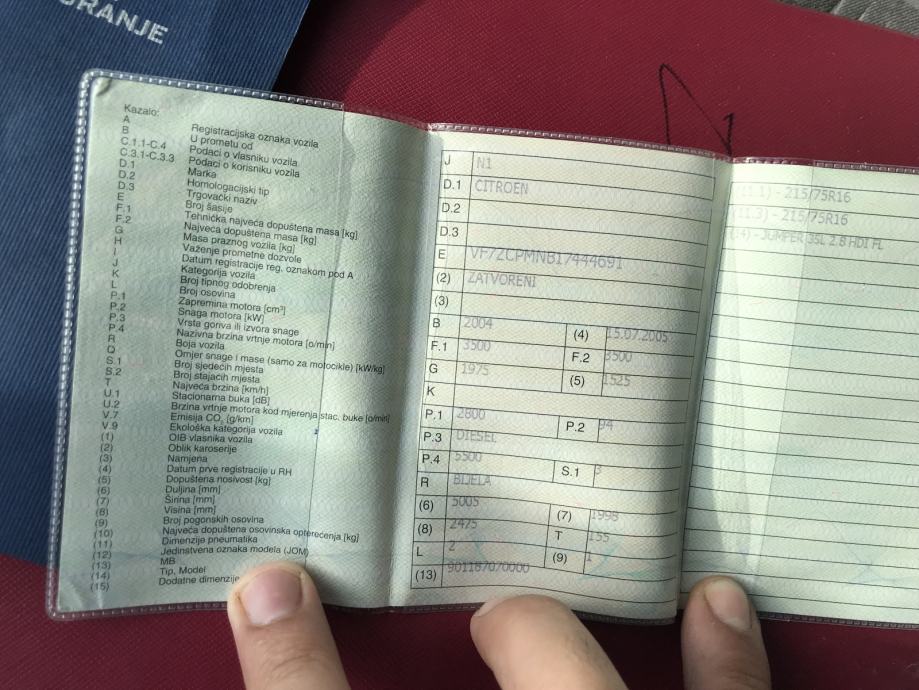 OSIGURANJE
Kazalo:
A Registracijska oznaka vozila
B U prometu od
C.1.1-C.4 Podaci o vlasniku vozila
C.3.1-C.3.3 Podaci o korisniku vozila
D.1 Marka
D.2 Homologacijski tip
D.3 Trgovački naziv
E Broj šasije
F.1 Tehnička najveća dopuštena masa [kg]
F.2 Najveća dopuštena masa [kg]
G Masa praznog vozila [kg]
H Važenje prometne dozvole
I Datum registracije reg. oznakom pod A
J Kategorija vozila
K Broj tipnog odobrenja
L Broj osovina
P.1 Zapremina motora [cm³]
P.2 Snaga motora [kW]
P.3 Vrsta goriva ili izvora snage
P.4 Nazivna brzina vrtnje motora [o/min]
R Boja vozila
Q Omjer snage i mase (samo za motocikle) [kW/kg]
S.1 Broj sjedećih mjesta
S.2 Broj stajaćih mjesta
T Najveća brzina [km/h]
U.1 Stacionarna buka [dB]
U.2 Brzina vrtnje motora kod mjerenja stac. buke [o/min]
V.7 Emisija CO₂ [g/km]
V.9 Ekološka kategorija vozila
(1) OIB vlasnika vozila
(2) Oblik karoserije
(3) Namjena
(4) Datum prve registracije u RH
(5) Dopuštena nosivost [kg]
(6) Duljina [mm]
(7) Širina [mm]
(8) Visina [mm]
(9) Broj pogonskih osovina
(10) Najveća dopuštena osovinska opterećenja [kg]
(11) Dimenzije pneumatika
(12) Jedinstvena oznaka modela (JOM)
(13) MB
(14) Tip, Model
(15) Dodatne dimenzije
J N1
D.1 CITROEN
D.2
D.3
E VF7ZCPMNB17444691
(2) ZATVORENI
(3)
B 2004 (4) 15.07.2005
F.1 3500 F.2 3500
G 1975 (5) 1525
K
P.1 2800 P.2 94
P.3 DIESEL
P.4 5500 S.1 3
R BIJELA
(6) 5005 (7) 1998
(8) 2475 T 155
L 2 (9) 1
(13) 901187070000
(11.1) - 215/75R16
(11.3) - 215/75R16
(14) - JUMPER 35L 2.8 HDI FL